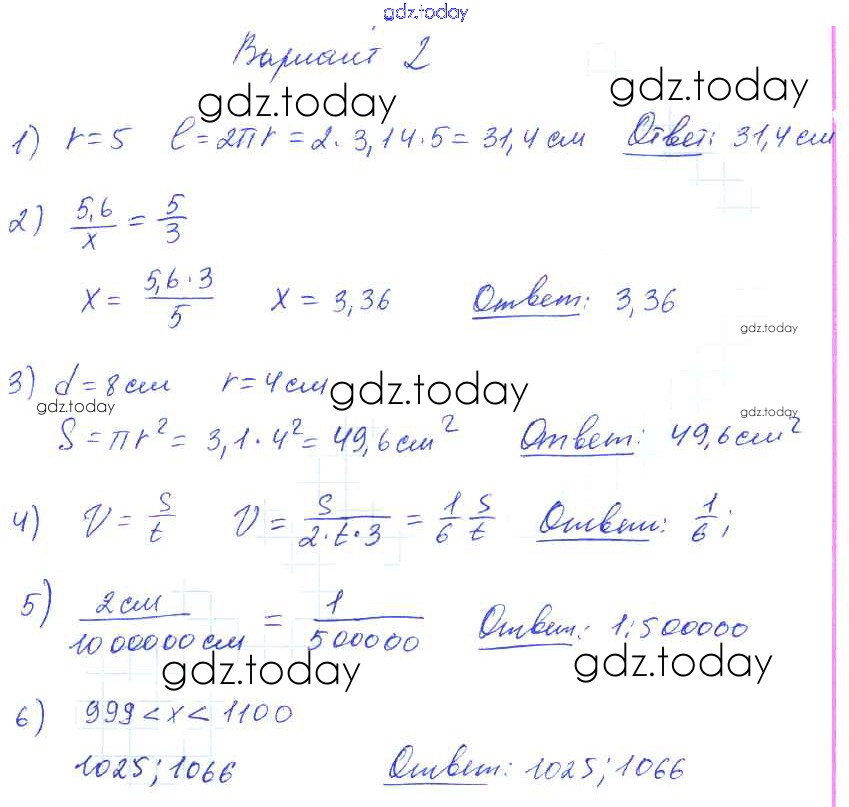 gdz.today
Вариант 2
gdz.today gdz.today
1) r = 5 l = 2πr = 2 · 3,14 · 5 = 31,4 см Ответ: 31,4 см
2) 5,6/x = 5/3
x = 5,6 · 3/5 x = 3,36 Ответ: 3,36
gdz.today
3) d = 8 см r = 4 см gdz.today
gdz.today gdz.today
S = πr² = 3,1 · 4² = 49,6 см² Ответ: 49,6 см²
4) V = S/t V = S/2·t·3 = 1/6 S/t Ответ: 1/6;
5) 2 см/1000000 см = 1/500000 Ответ: 1:500000
gdz.today gdz.today
6) 999 < x < 1100
1025; 1066 Ответ: 1025; 1066
gdz.today gdz.today